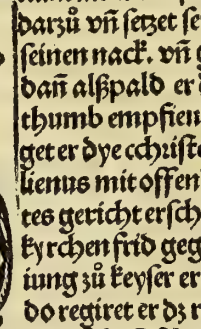 darzů vñ setzet se
seinen nack. vñ g
dañ alßpald er d
thumb empfien
get er dye cchriste
lienus mit offen
tes gericht ersch
kyrchen frid geg
iung zů keyser er
do regiret er dz r